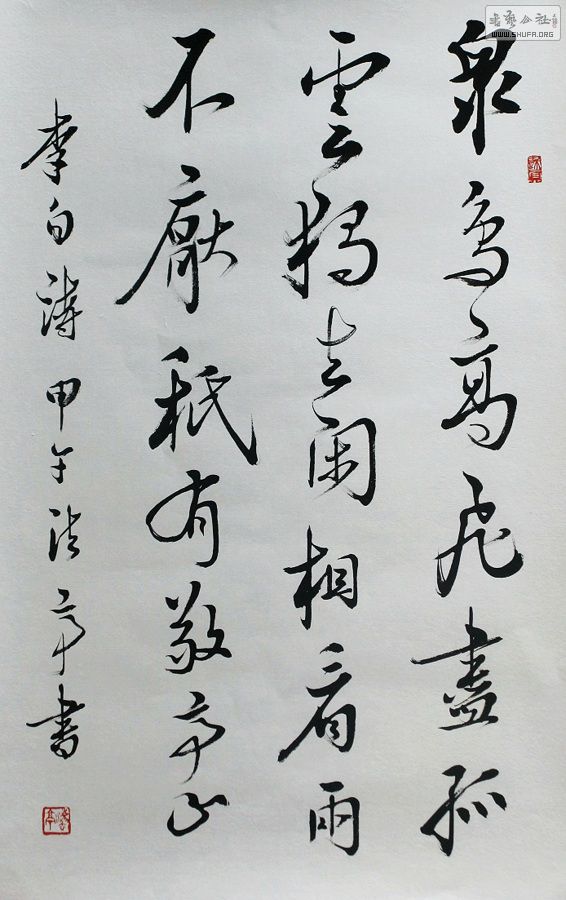 眾鳥高飛盡孤
雲獨去閑相看兩
不厭秖有敬亭山
李白詩甲午亭書
書藝公社
WWW.SHUFA.ORG